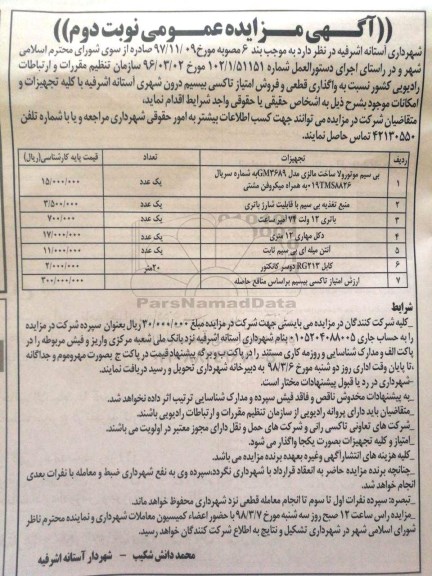 ((آگهی مزایده عمومی نوبت دوم))
شهرداری آستانه اشرفیه در نظر دارد به موجب بند ۶ مصوبه مورخ ۹۷/۱۱/۰۹ صادره از سوی شورای محترم اسلامی
شهر و در راستای اجرای دستورالعمل شماره ۱۰۲/۱/۵۱۱۵۱ مورخ ۹۶/۰۳/۰۲ سازمان تنظیم مقررات و ارتباطات
رادیویی کشور نسبت به واگذاری قطعی و فروش امتیاز تاکسی بیسیم درون شهری آستانه اشرفیه با کلیه تجهیزات و
امکانات موجود بشرح ذیل به اشخاص حقیقی یا حقوقی واجد شرایط اقدام نماید.
متقاضیان شرکت در مزایده می توانند جهت کسب اطلاعات بیشتر به امور حقوقی شهرداری مراجعه و یا با شماره تلفن
۴۲۱۳۰۵۵۰ تماس حاصل نمایند.
ردیف تجهیزات تعداد قیمت پایه کارشناسی(ریال)
۱ بی سیم موتورولا ساخت مالزی مدل GM۳۶۸۹ به شماره سریال ۰۱۹TMS۸۸۲۶ به همراه میکروفن مشتی یک عدد ۱۵/۰۰۰/۰۰۰
۲ منبع تغذیه بی سیم با قابلیت شارژ باتری یک عدد ۳/۵۰۰/۰۰۰
۳ باتری ۱۲ ولت ۷۴ آمپر ساعت یک عدد ۷۰۰/۰۰۰
۴ دکل مهاری ۱۲ متری یک عدد ۱۷/۰۰۰/۰۰۰
۵ آنتن میله ای بی سیم ثابت یک عدد ۱۱/۰۰۰/۰۰۰
۶ کابل RG۲۱۳ دوسر کانکتور ۲۰متر ۲/۰۰۰/۰۰۰
۷ ارزش امتیاز تاکسی بیسیم براساس منافع حاصله ۲۰۰/۰۰۰/۰۰۰
ParsNamadData
شرایط
_کلیه شرکت کنندگان در مزایده می بایستی جهت شرکت در مزایده مبلغ ۳۰/۰۰۰/۰۰۰ ریال بعنوان سپرده شرکت در مزایده
را به حساب جاری ۰۱۰۵۲۰۴۰۸۸۰۰۵ بنام شهرداری آستانه اشرفیه نزد بانک ملی شعبه مرکزی واریز و فیش مربوطه را در
پاکت الف و مدارک شناسایی و روزمه کاری مستند را در پاکت ب و برگه پیشنهاد قیمت در پاکت ج بصورت مهروموم و جداگانه
،تا پایان وقت اداری روز دو شنبه مورخ ۹۸/۳/۶ به دبیرخانه شهرداری تحویل و رسید دریافت نمایند.
-شهرداری در رد یا قبول پیشنهادات مختار است.
_به پیشنهادات مخدوش ناقص و فاقد فیش سپرده و مدارک شناسایی ترتیب اثر داده نخواهد شد.
_متقاضیان باید دارای پروانه رادیویی از سازمان تنظیم مقررات و ارتباطات رادیویی باشند.
_شرکت های تعاونی تاکسی رانی و شرکت های حمل و نقل دارای مجوز معتبر در اولویت می باشند.
_امتیاز و کلیه تجهیزات بصورت یکجا واگذار می شود.
_کلیه هزینه های انتشارآگهی وغیره بعهده برنده مزایده می باشد.
_چنانچه برنده مزایده حاضر به انعقاد قرارداد با شهرداری نگردد،سپرده وی به نفع شهرداری ضبط و معامله با نفرات بعدی
انجام خواهد شد.
_تبصره: سپرده نفرات اول تا سوم تا انجام معامله قطعی نزد شهرداری محفوظ خواهد ماند.
_مزایده راس ساعت ۱۲ صبح روز سه شنبه مورخ ۹۸/۳/۷ با حضور اعضاء کمیسیون معاملات شهرداری و نماینده محترم ناظر
شورای اسلامی شهر در شهرداری تشکیل و نتایج به اطلاع شرکت کنندگان خواهد رسید.
محمد دانش شکیب - شهردار آستانه اشرفیه